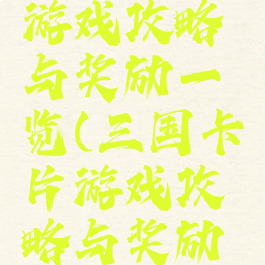 游戏攻略
与奖励一
览(三国卡
片游戏攻
略与奖励